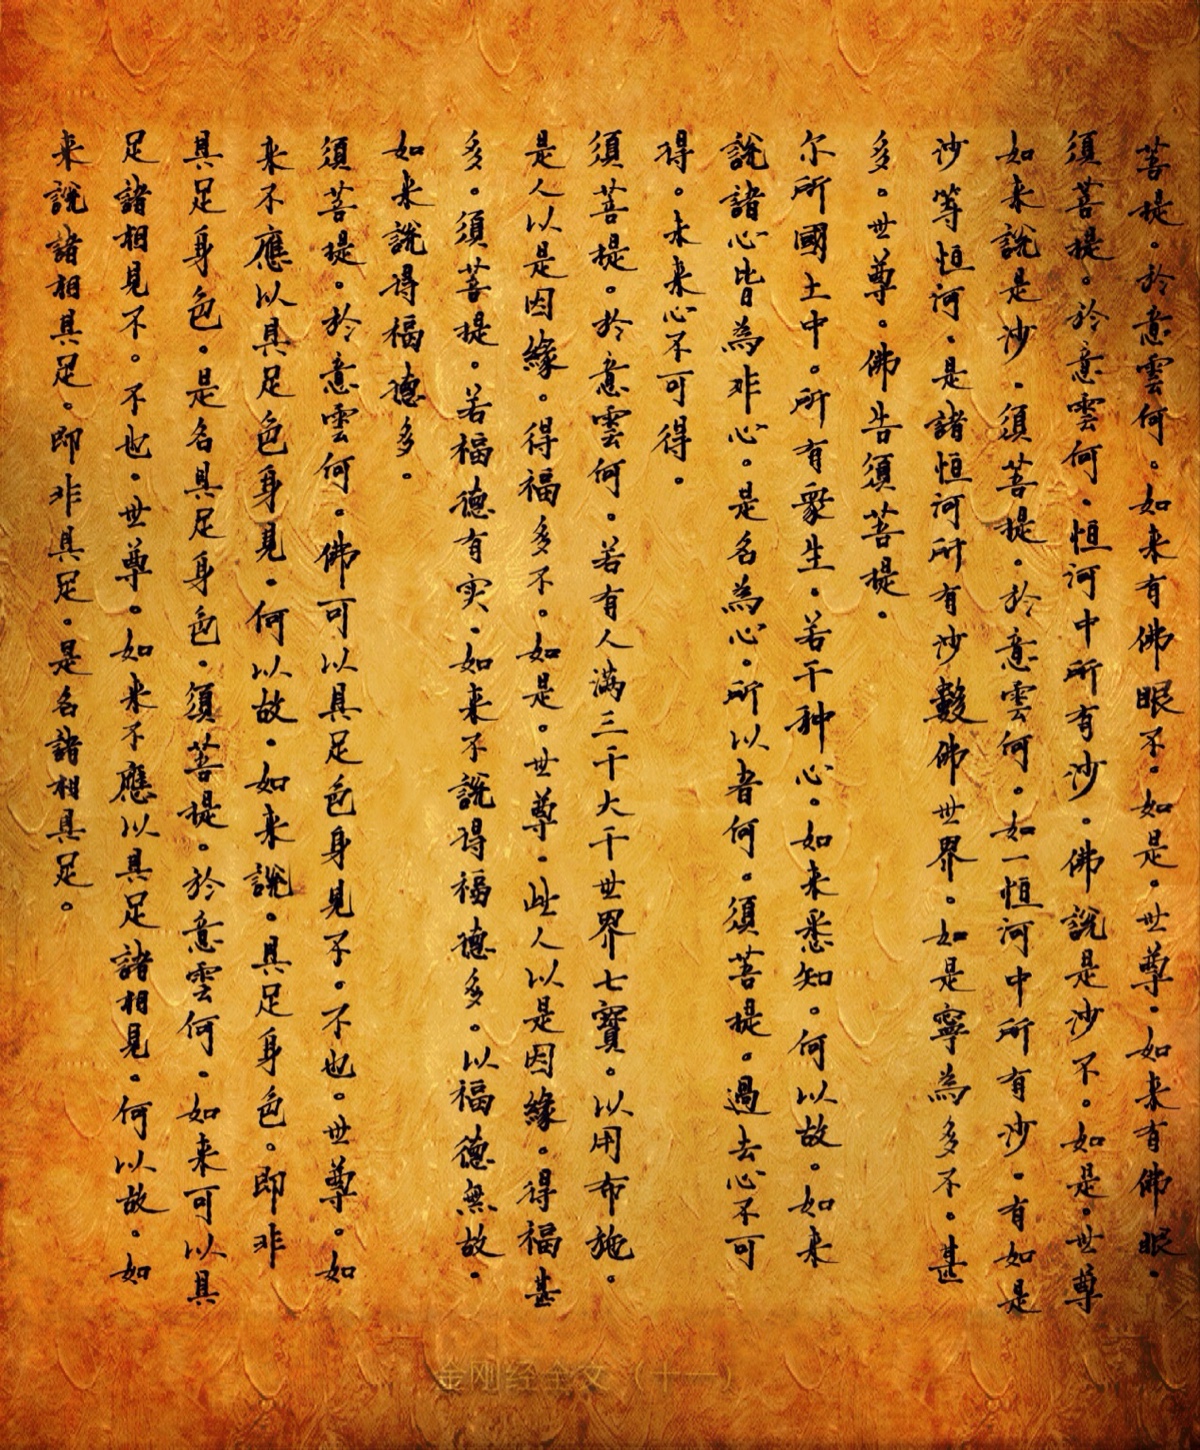 菩提。於意雲何。如来有佛眼不。如是。世尊。如来有佛眼。
須菩提。於意雲何。恒河中所有沙。佛說是沙不。如是。世尊
如来說是沙。須菩提。於意雲何。如一恒河中所有沙。有如是
沙等恒河。是諸恒河所有沙數佛世界。如是寧為多不。甚
多。世尊。佛告須菩提。
尔所國土中。所有眾生。若干种心。如来悉知。何以故。如来
說諸心皆為非心。是名為心。所以者何。須菩提。過去心不可
得。未来心不可得。
須菩提。於意雲何。若有人滿三千大千世界七寶。以用布施。
是人以是因緣。得福多不。如是。世尊。此人以是因緣。得福甚
多。須菩提。若福德有实。如来不說得福德多。以福德無故。
如来說得福德多。
須菩提。於意雲何。佛可以具足色身見不。不也。世尊。如
来不應以具足色身見。何以故。如来說。具足身色。即非
具足身色。是名具足身色。須菩提。於意雲何。如来可以具
足諸相見不。不也。世尊。如来不應以具足諸相見。何以故。如
来說諸相具足。即非具足。是名諸相具足。
金刚经全文（十一）